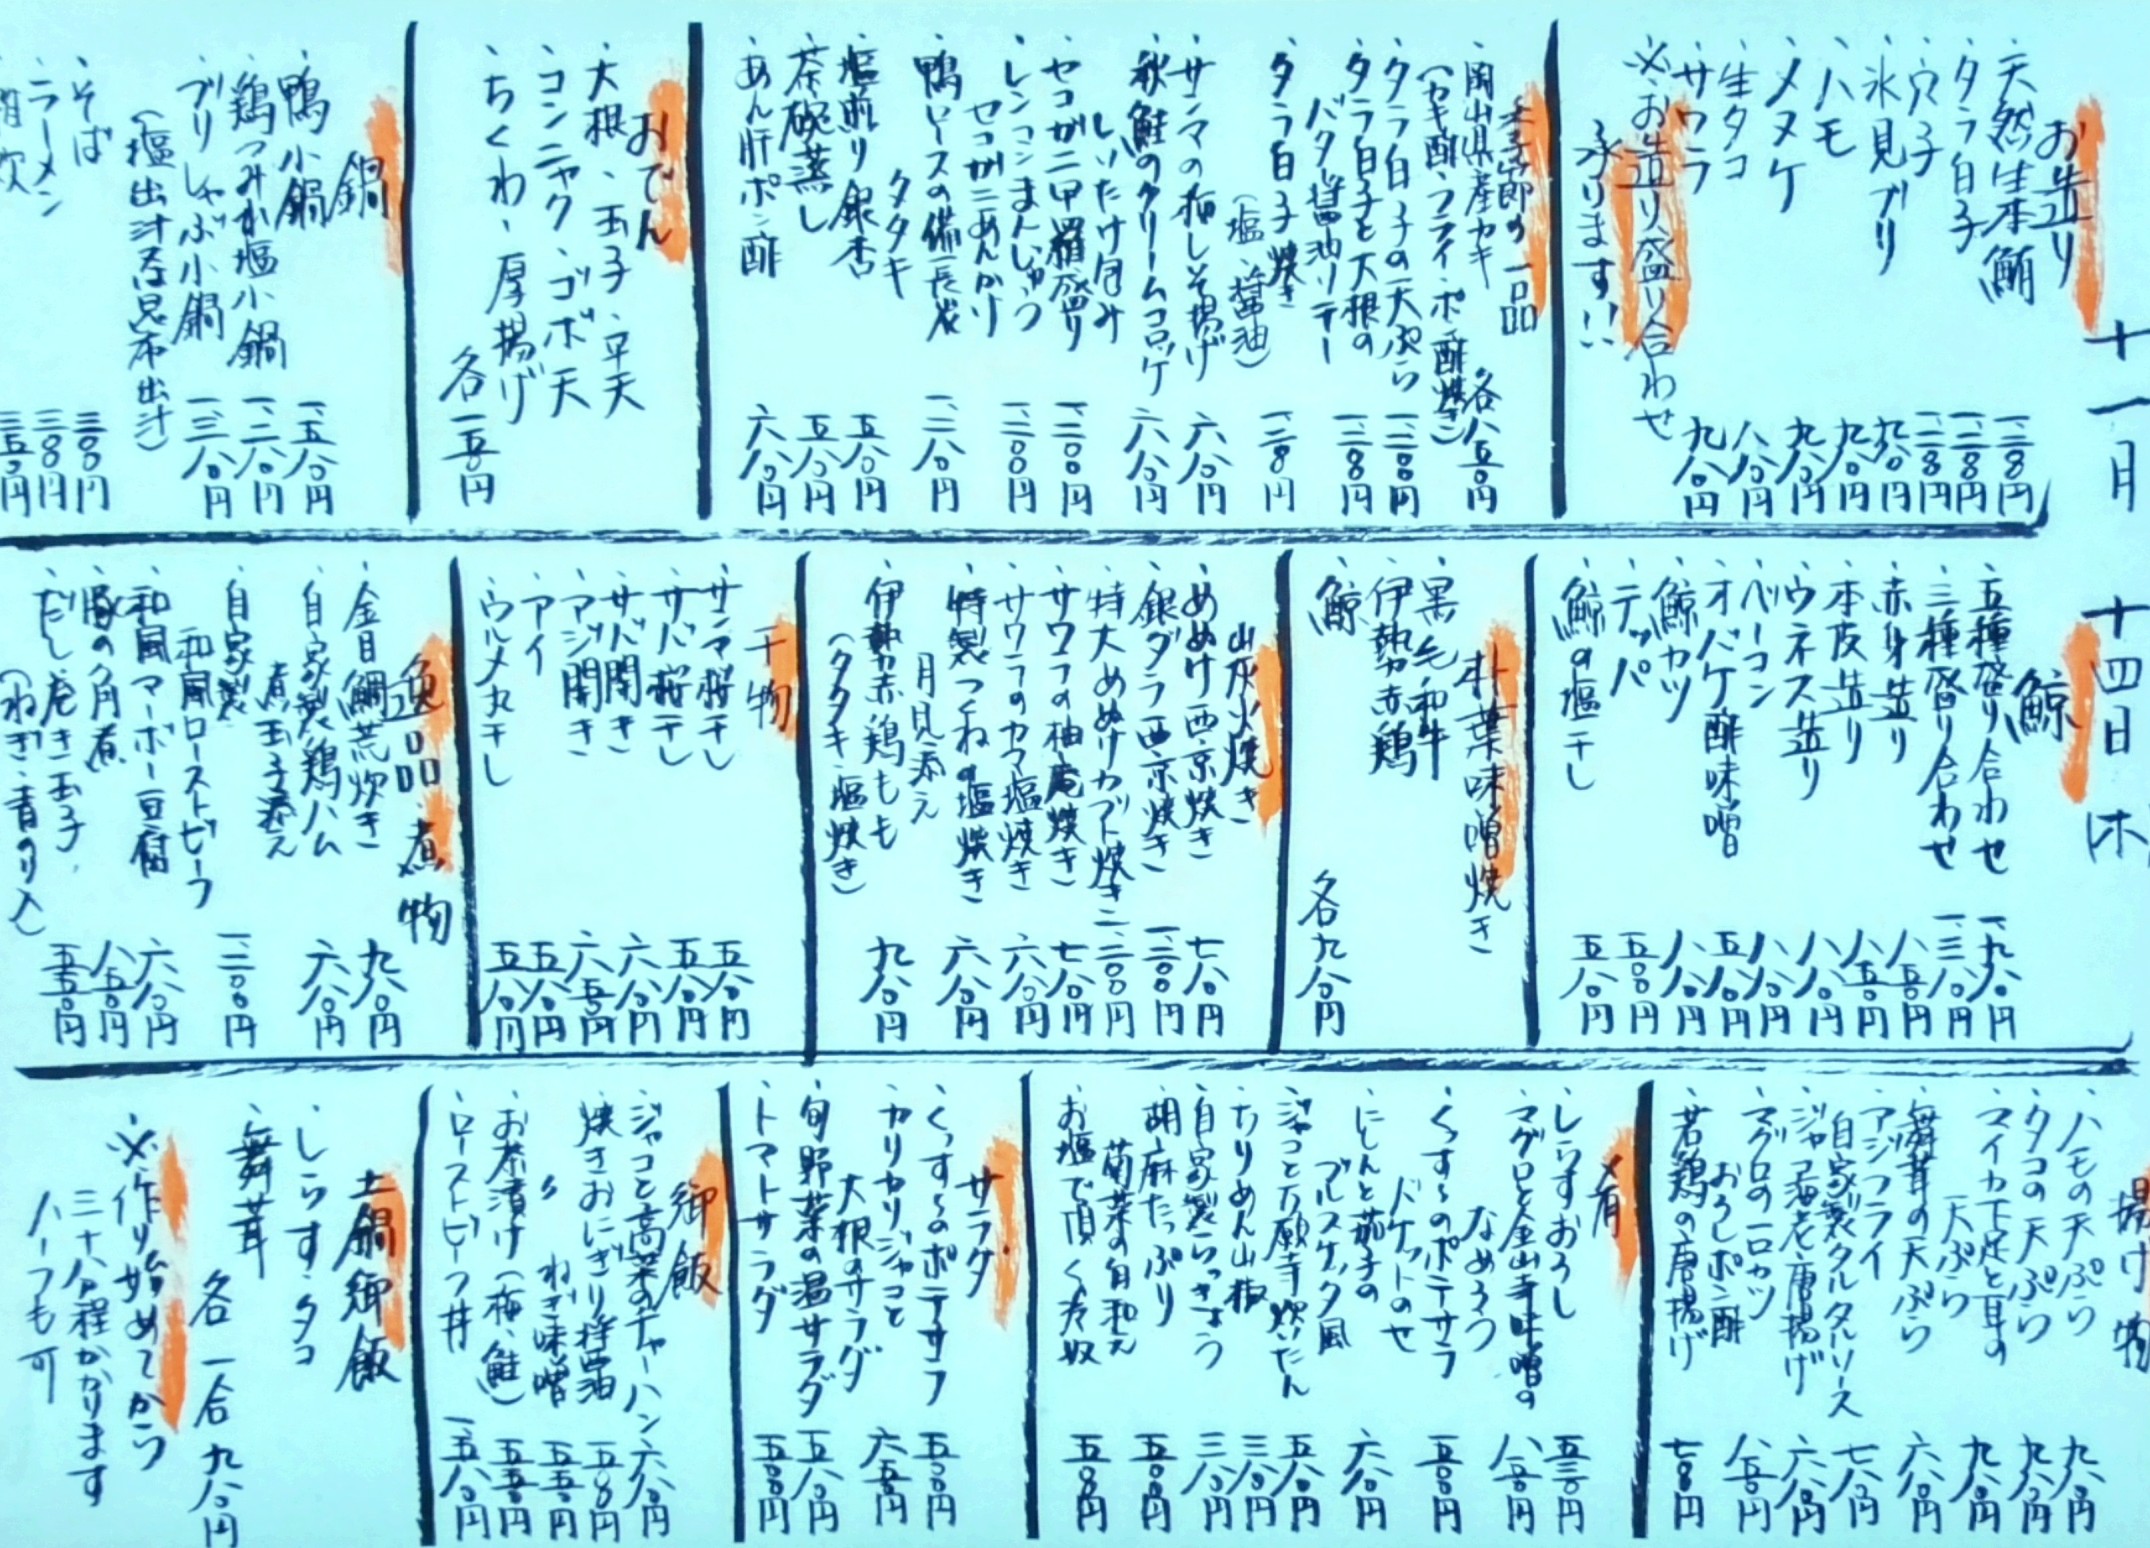 十一月 十四日 㐂
お造り
・天然生本鮪 一、二八〇円
・タラ白子 一、二八〇円
・穴子 一、二八〇円
・氷見ブリ 九八〇円
・ハモ 九八〇円
・メヌケ 九八〇円
・生タコ 八八〇円
・サワラ 九八〇円
※お造り盛り合わせ
承ります!!
季節の一品
・岡山県産カキ 各八五〇円
(カキ酢・フライ・ポン酢焼き)
・タラ白子の天ぷら 一、二〇〇円
・タラ白子と大根の
バター醤油ソテー 一、二八〇円
・タラ白子焼き
(塩・醤油) 一、二八〇円
・サンマの梅しそ揚げ 六八〇円
・秋鮭のクリームコロッケ 六八〇円
しいたけ包み
・セコガニ甲羅盛り 一、二〇〇円
・レンコンまんじゅう
セコガニあんかけ 一、二〇〇円
・鴨ロースの備長炭
タタキ 一、二八〇円
・塩煎り銀杏 五八〇円
・茶碗蒸し 五八〇円
・あん肝ポン酢 六八〇円
おでん
・大根・玉子・平天
・コンニャク・ゴボ天
・ちくわ・厚揚げ
各一五〇円
鍋
・鴨小鍋 一、五八〇円
・鶏つみれ塩小鍋 一、二八〇円
・ブリしゃぶ小鍋 一、三八〇円
(塩出汁or昆布出汁)
・そば 三〇〇円
・ラーメン 三〇〇円
・雑炊 三五〇円
鯨
・五種盛り合わせ 一、九八〇円
・三種盛り合わせ 一、三八〇円
・赤身造り 八五〇円
・本皮造り 八五〇円
・ウネス造り 八八〇円
・ベーコン 八八〇円
・オバケ酢味噌 五八〇円
・鯨カツ 八八〇円
・テッパ 五〇〇円
・鯨の塩干し 五八〇円
朴葉味噌焼き
・黒毛和牛
・伊勢赤鶏
・鯨
各九八〇円
炭火焼き
・めぬけ西京焼き 七八〇円
・銀ダラ西京焼き 一、二〇〇円
・特大めぬけカブト焼き 二、二〇〇円
・サワラの柚庵焼き 七八〇円
・サワラのカマ塩焼き 六八〇円
・特製つくねの塩焼き 六八〇円
月見添え
・伊勢赤鶏もも 九八〇円
(タタキ・塩焼き)
干物
・サンマ桜干し 五八〇円
・サバ桜干し 五八〇円
・サバ開き 六八〇円
・アジ開き 六五〇円
・アイ 五八〇円
・ウルメ丸干し 五八〇円
逸品・煮物
・金目鯛荒炊き 九八〇円
・自家製鶏ハム
煮玉子添え 六八〇円
・自家製
和風ローストビーフ 一、二〇〇円
・和風マーボー豆腐 六八〇円
・豚の角煮 八五〇円
・だし巻き玉子 五五〇円
(ねぎ・青のり入)
揚げ物
・ハモの天ぷら 九八〇円
・タコの天ぷら 九八〇円
・マイカ下足と耳の
天ぷら 九八〇円
・舞茸の天ぷら 六八〇円
・アジフライ
自家製タルタルソース 七八〇円
・ジャコ海老唐揚げ 六八〇円
・マグロの一口カツ
おろしポン酢 八五〇円
・若鶏の唐揚げ 七八〇円
肴
・しらすおろし 五三〇円
・マグロと金山寺味噌の
なめろう 八五〇円
・くす〜のポテサラ
バケットのせ 五〇〇円
・にしんと茄子の
ブルスケッタ風 六八〇円
・ジャコと万願寺炊いたん 五八〇円
・ちりめん山椒 三八〇円
・自家製らっきょう 三八〇円
・胡麻たっぷり
菊菜の白和え 五〇〇円
・お塩で頂く冷奴 五〇〇円
サラダ
・くす〜のポテサラ 五〇〇円
・カリカリジャコと
大根のサラダ 六五〇円
・旬野菜の温サラダ 五八〇円
・トマトサラダ 五〇〇円
御飯
・ジャコと高菜のチャーハン 六八〇円
・焼きおにぎり 醤油 五〇〇円
〃 ねぎ味噌 五五〇円
・お茶漬け(梅・鮭) 五五〇円
・ローストビーフ丼 一、五八〇円
土鍋御飯
・しらす・タコ
・舞茸
各 一合 九八〇円
※作り始めてから
三十分程かかります
ハーフも可